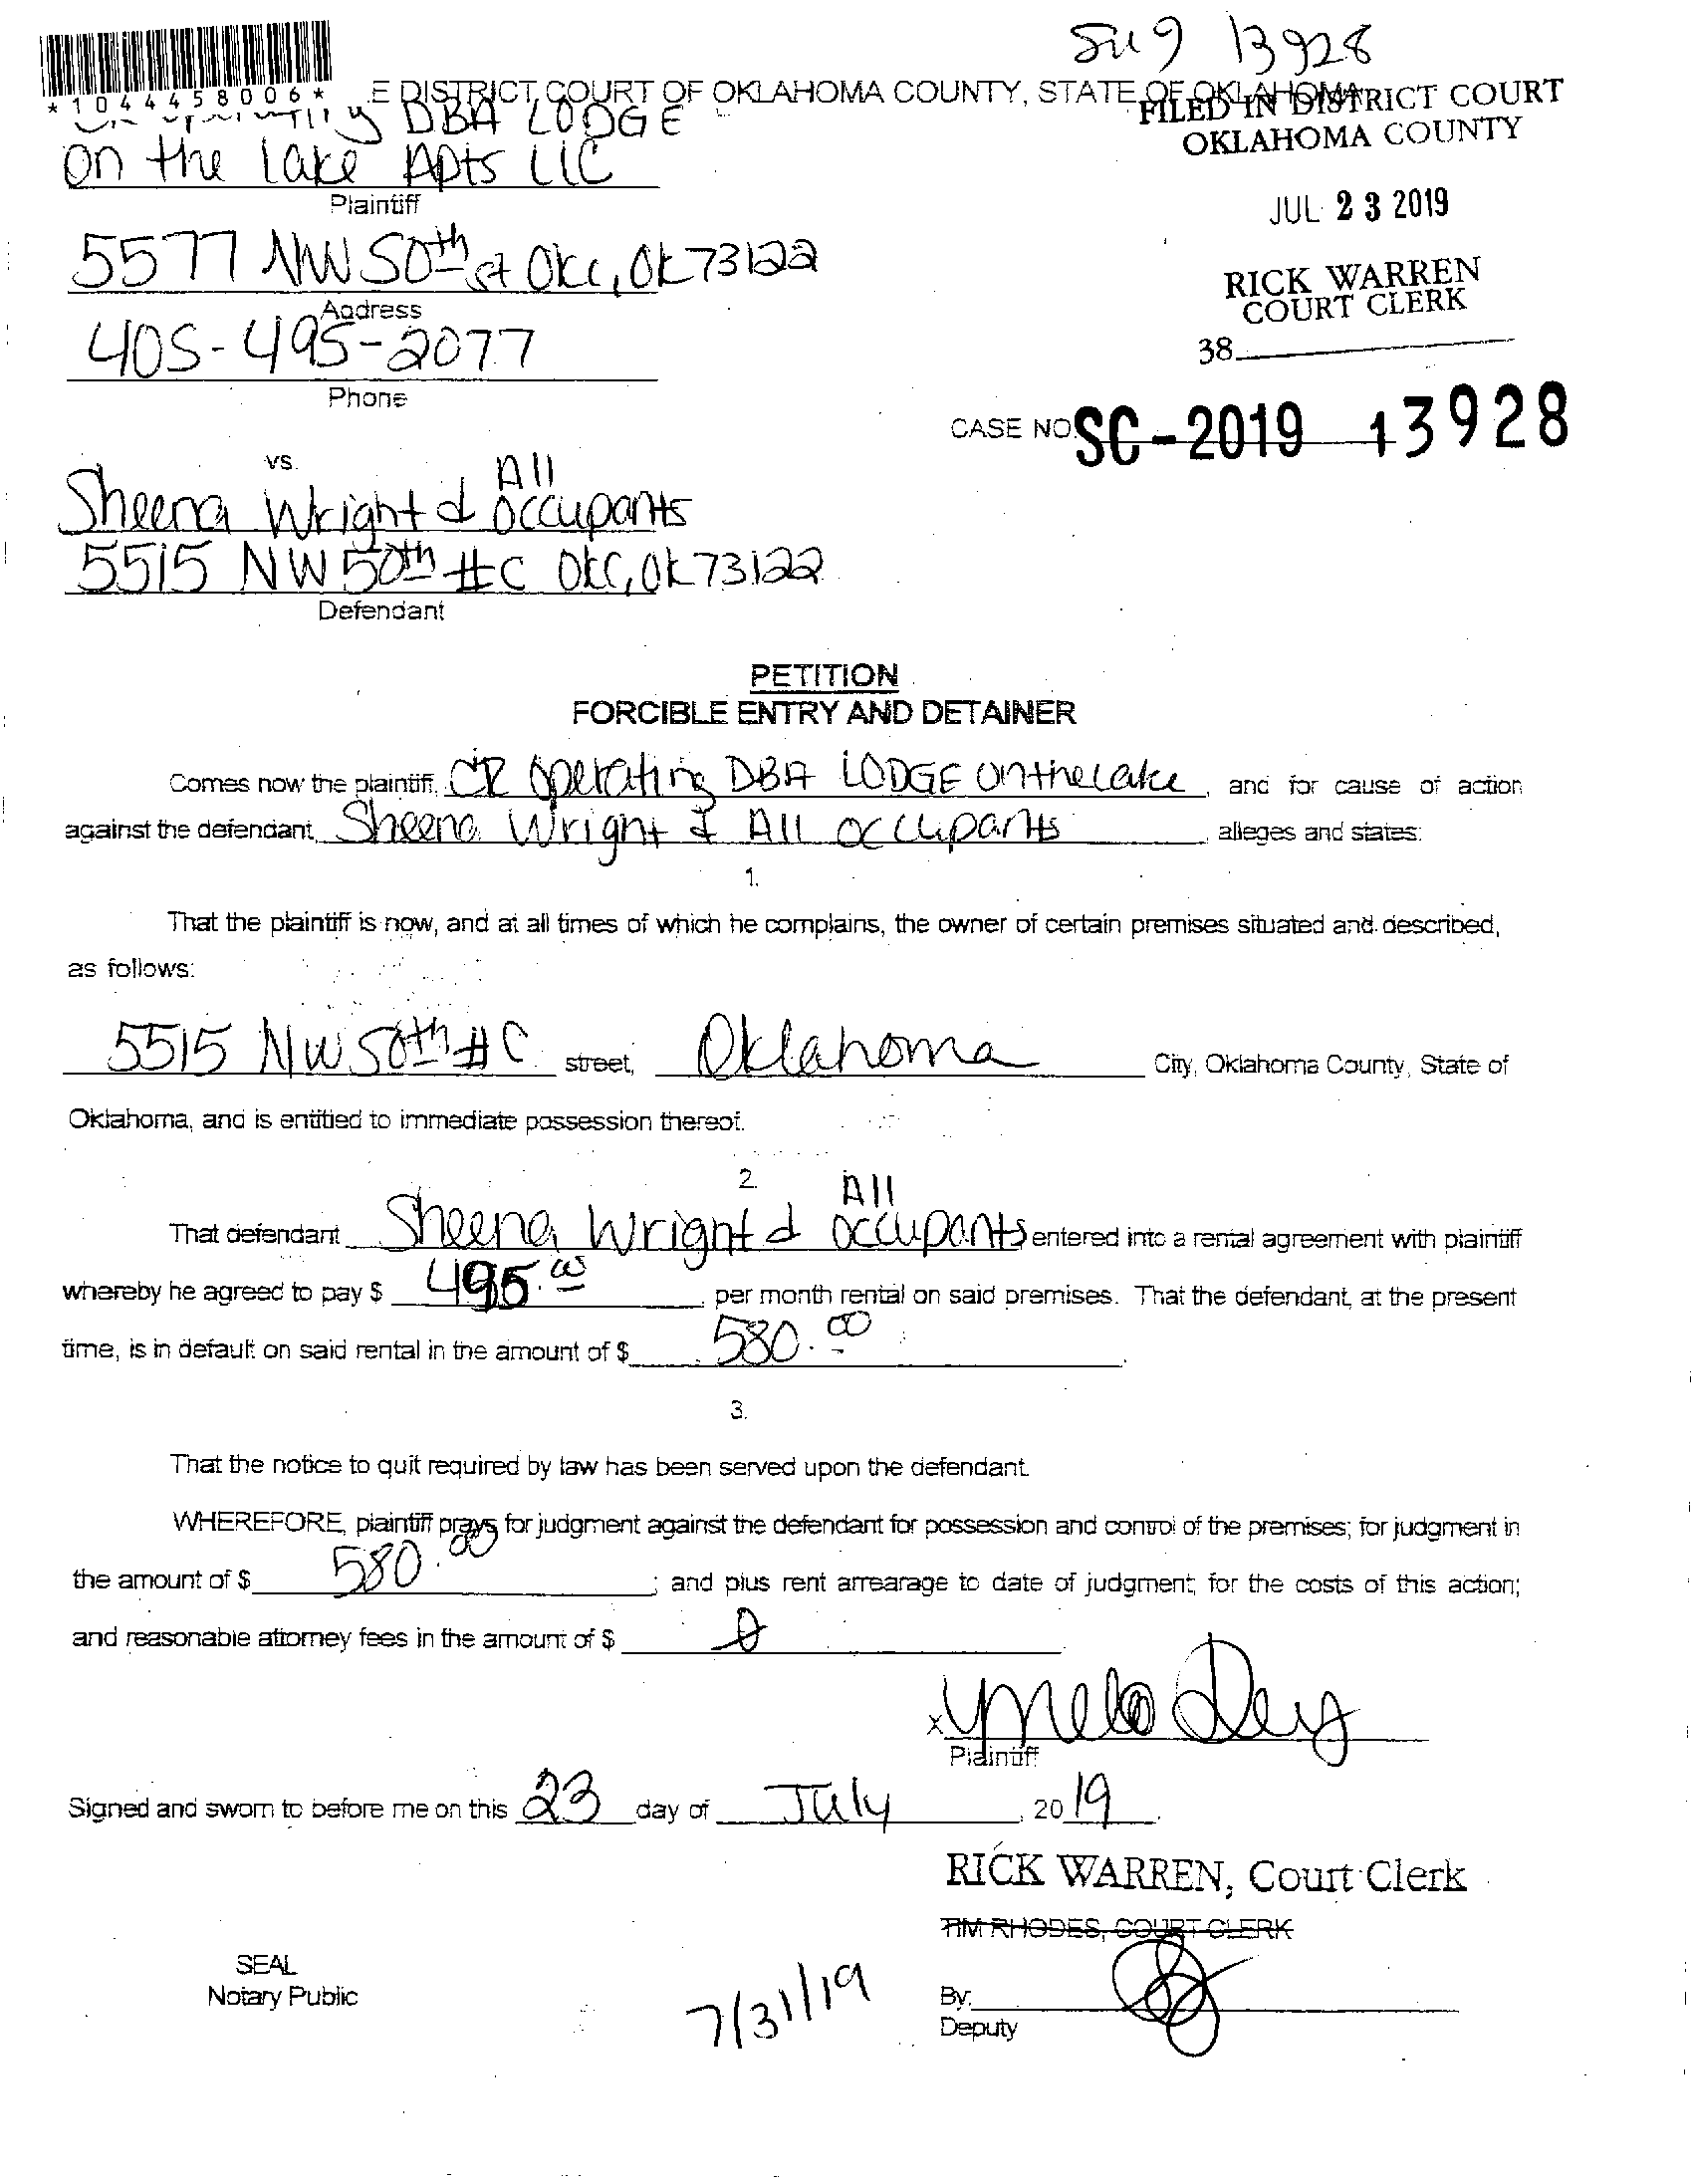 SC19 13928
*1044458006*
E DISTRICT COURT OF OKLAHOMA COUNTY, STATE OF OKLAHOMA
FILED IN DISTRICT COURT
OKLAHOMA COUNTY
DBA LODGE
on the lake Apts LLC
Plaintiff
JUL 23 2019
5577 NW 50th st OKC, OK 73122
Address
RICK WARREN
COURT CLERK
405-495-2077
38
Phone
CASE NO. SC-2019 13928
vs.
Sheena Wright & All occupants
5515 NW 50th #C OKC, OK 73122
Defendant
PETITION
FORCIBLE ENTRY AND DETAINER
Comes now the plaintiff, CR Operating DBA LODGE Onthelake, and for cause of action
against the defendant, Sheena Wright & All occupants, alleges and states:
1.
That the plaintiff is now, and at all times of which he complains, the owner of certain premises situated and described,
as follows:
5515 NW 50th #C street, Oklahoma City, Oklahoma County, State of
Oklahoma, and is entitled to immediate possession thereof.
2.
That defendant Sheena Wright & All occupants entered into a rental agreement with plaintiff
whereby he agreed to pay $ 495.00 per month rental on said premises. That the defendant, at the present
time, is in default on said rental in the amount of $ 580.00.
3.
That the notice to quit required by law has been served upon the defendant.
WHEREFORE, plaintiff prays for judgment against the defendant for possession and control of the premises; for judgment in
the amount of $ 580.00; and plus rent arrearage to date of judgment; for the costs of this action;
and reasonable attorney fees in the amount of $ 0
x
Plaintiff
Signed and sworn to before me on this 23 day of July, 2019.
RICK WARREN, Court Clerk
TIM RHODES, COURT CLERK
SEAL
Notary Public
7/31/19
By:
Deputy